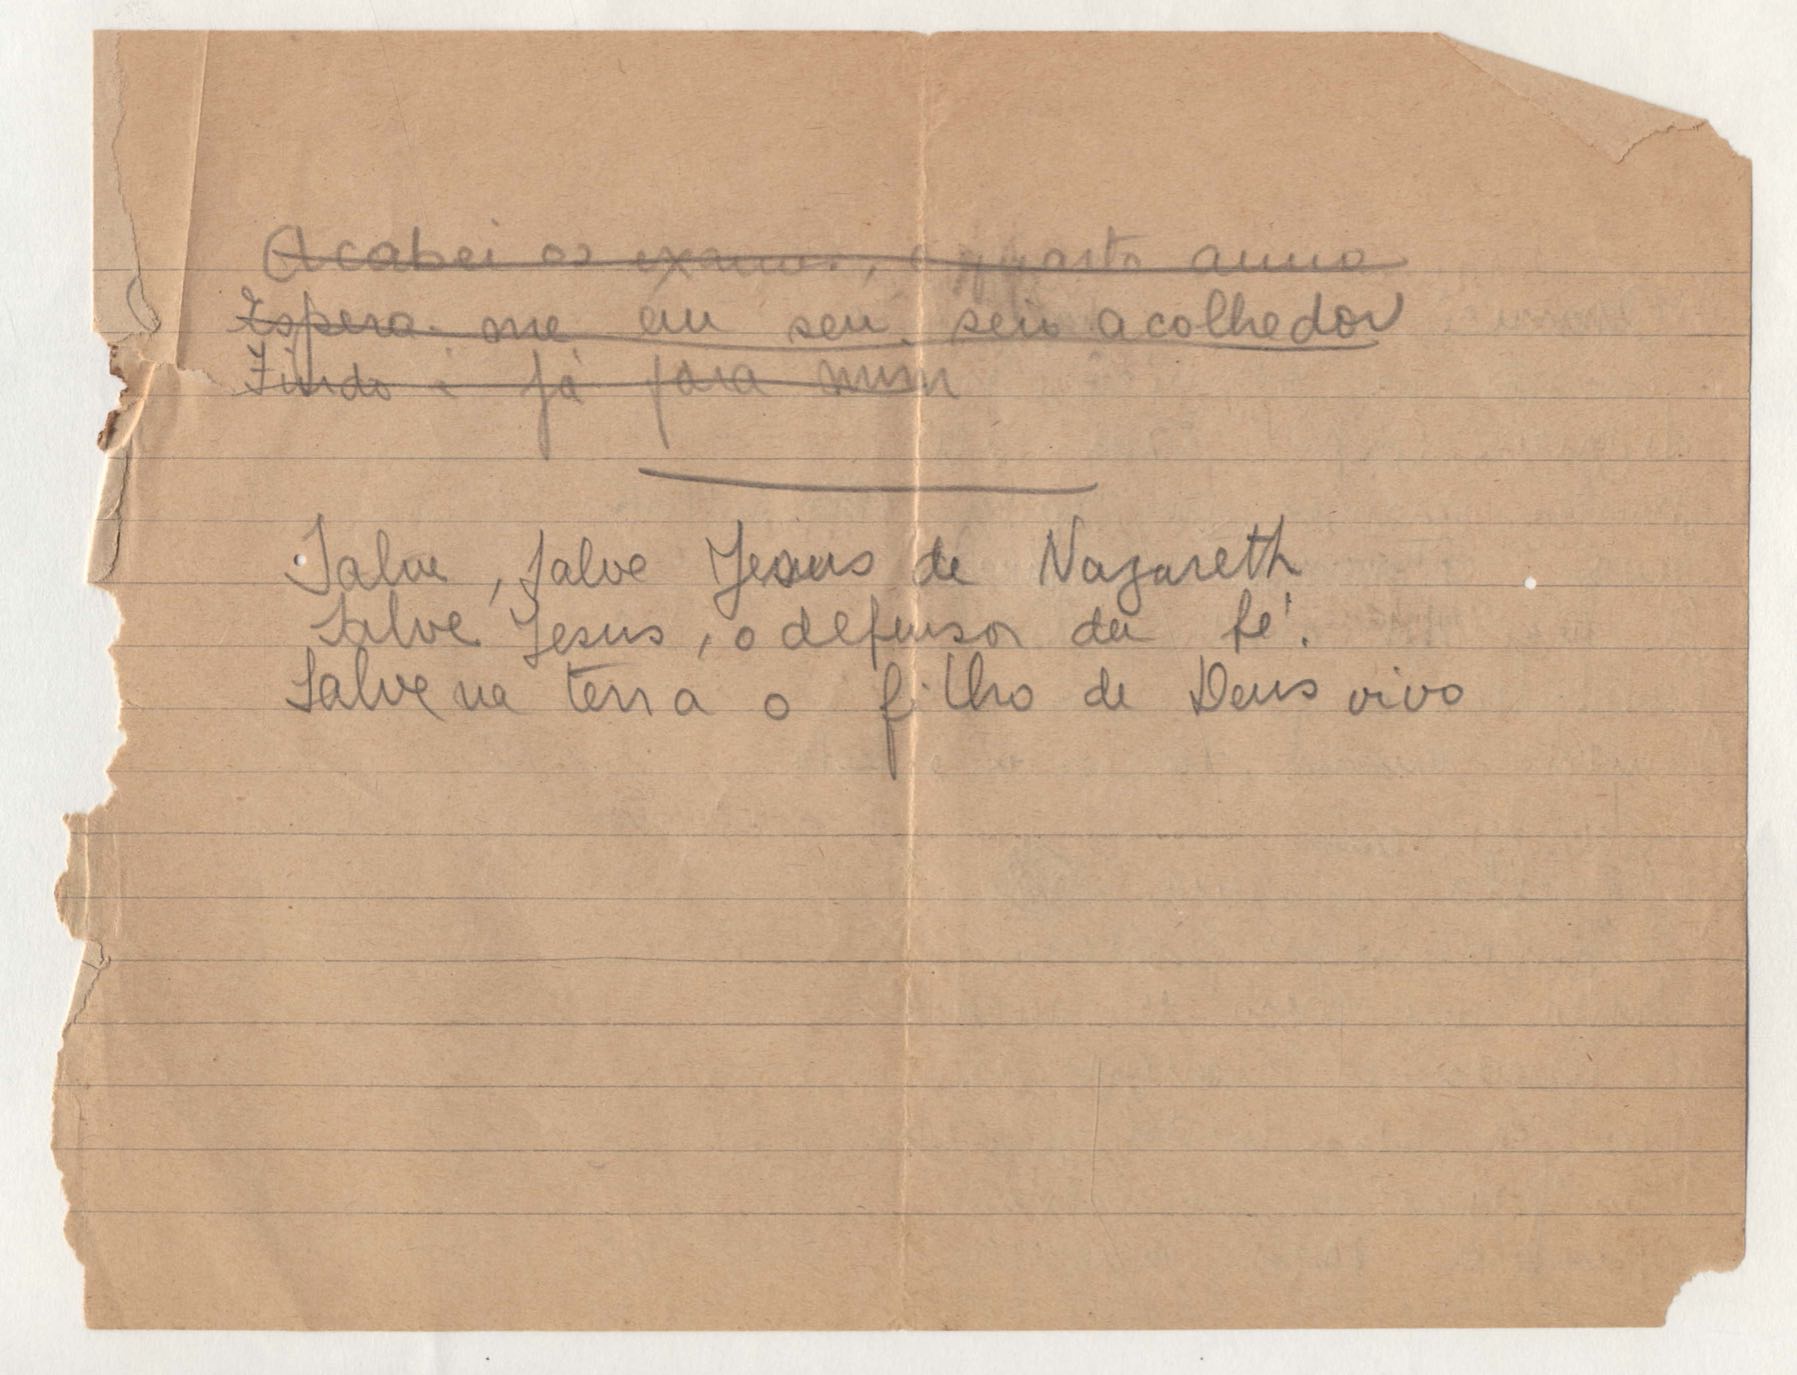 Acabei os exames, o quarto anno
Espera-me em seu seio acolhedor
Findo é já para mim
Salve, salve Jesus de Nazareth
Salve Jesus, o defensor da fé.
Salve na terra o filho de Deus vivo